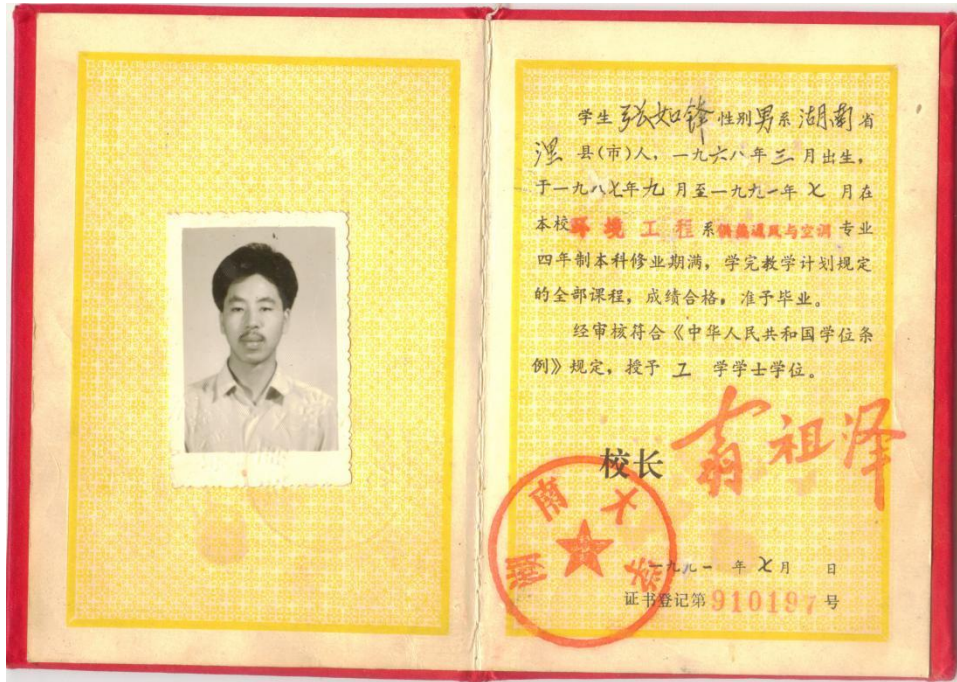 学生 张如锋 性别男系湖南省
澧 县(市)人，一九六八年三月出生，
于一九八七年九月至一九九一年七月在
本校环境工程系供热通风与空调专业
四年制本科修业期满，学完教学计划规定
的全部课程，成绩合格，准予毕业。
经审核符合《中华人民共和国学位条
例》规定，授予 工 学学士学位。
校长 翁祖泽
湖南大学
一九九一年七月 日
证书登记第910197号